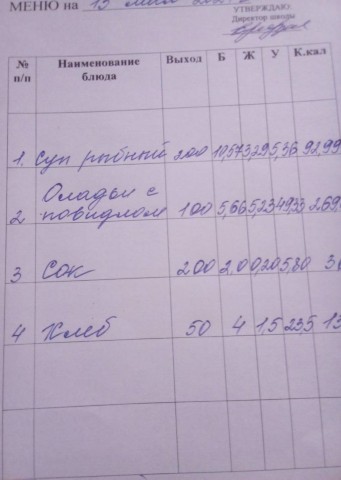 МЕНЮ на 13 мая
УТВЕРЖДАЮ.
Директор школы
№ п/п Наименование блюда Выход Б Ж У К.кал
1. Суп рыбный 200 10,57 3,29 5,36 92,99
2 Оладьи с
повидлом 100 5,66 5,23 49,33 269,
3 Сок 200 2,0 0,20 5,80 3
4 Хлеб 50 4 1,5 23,5 13